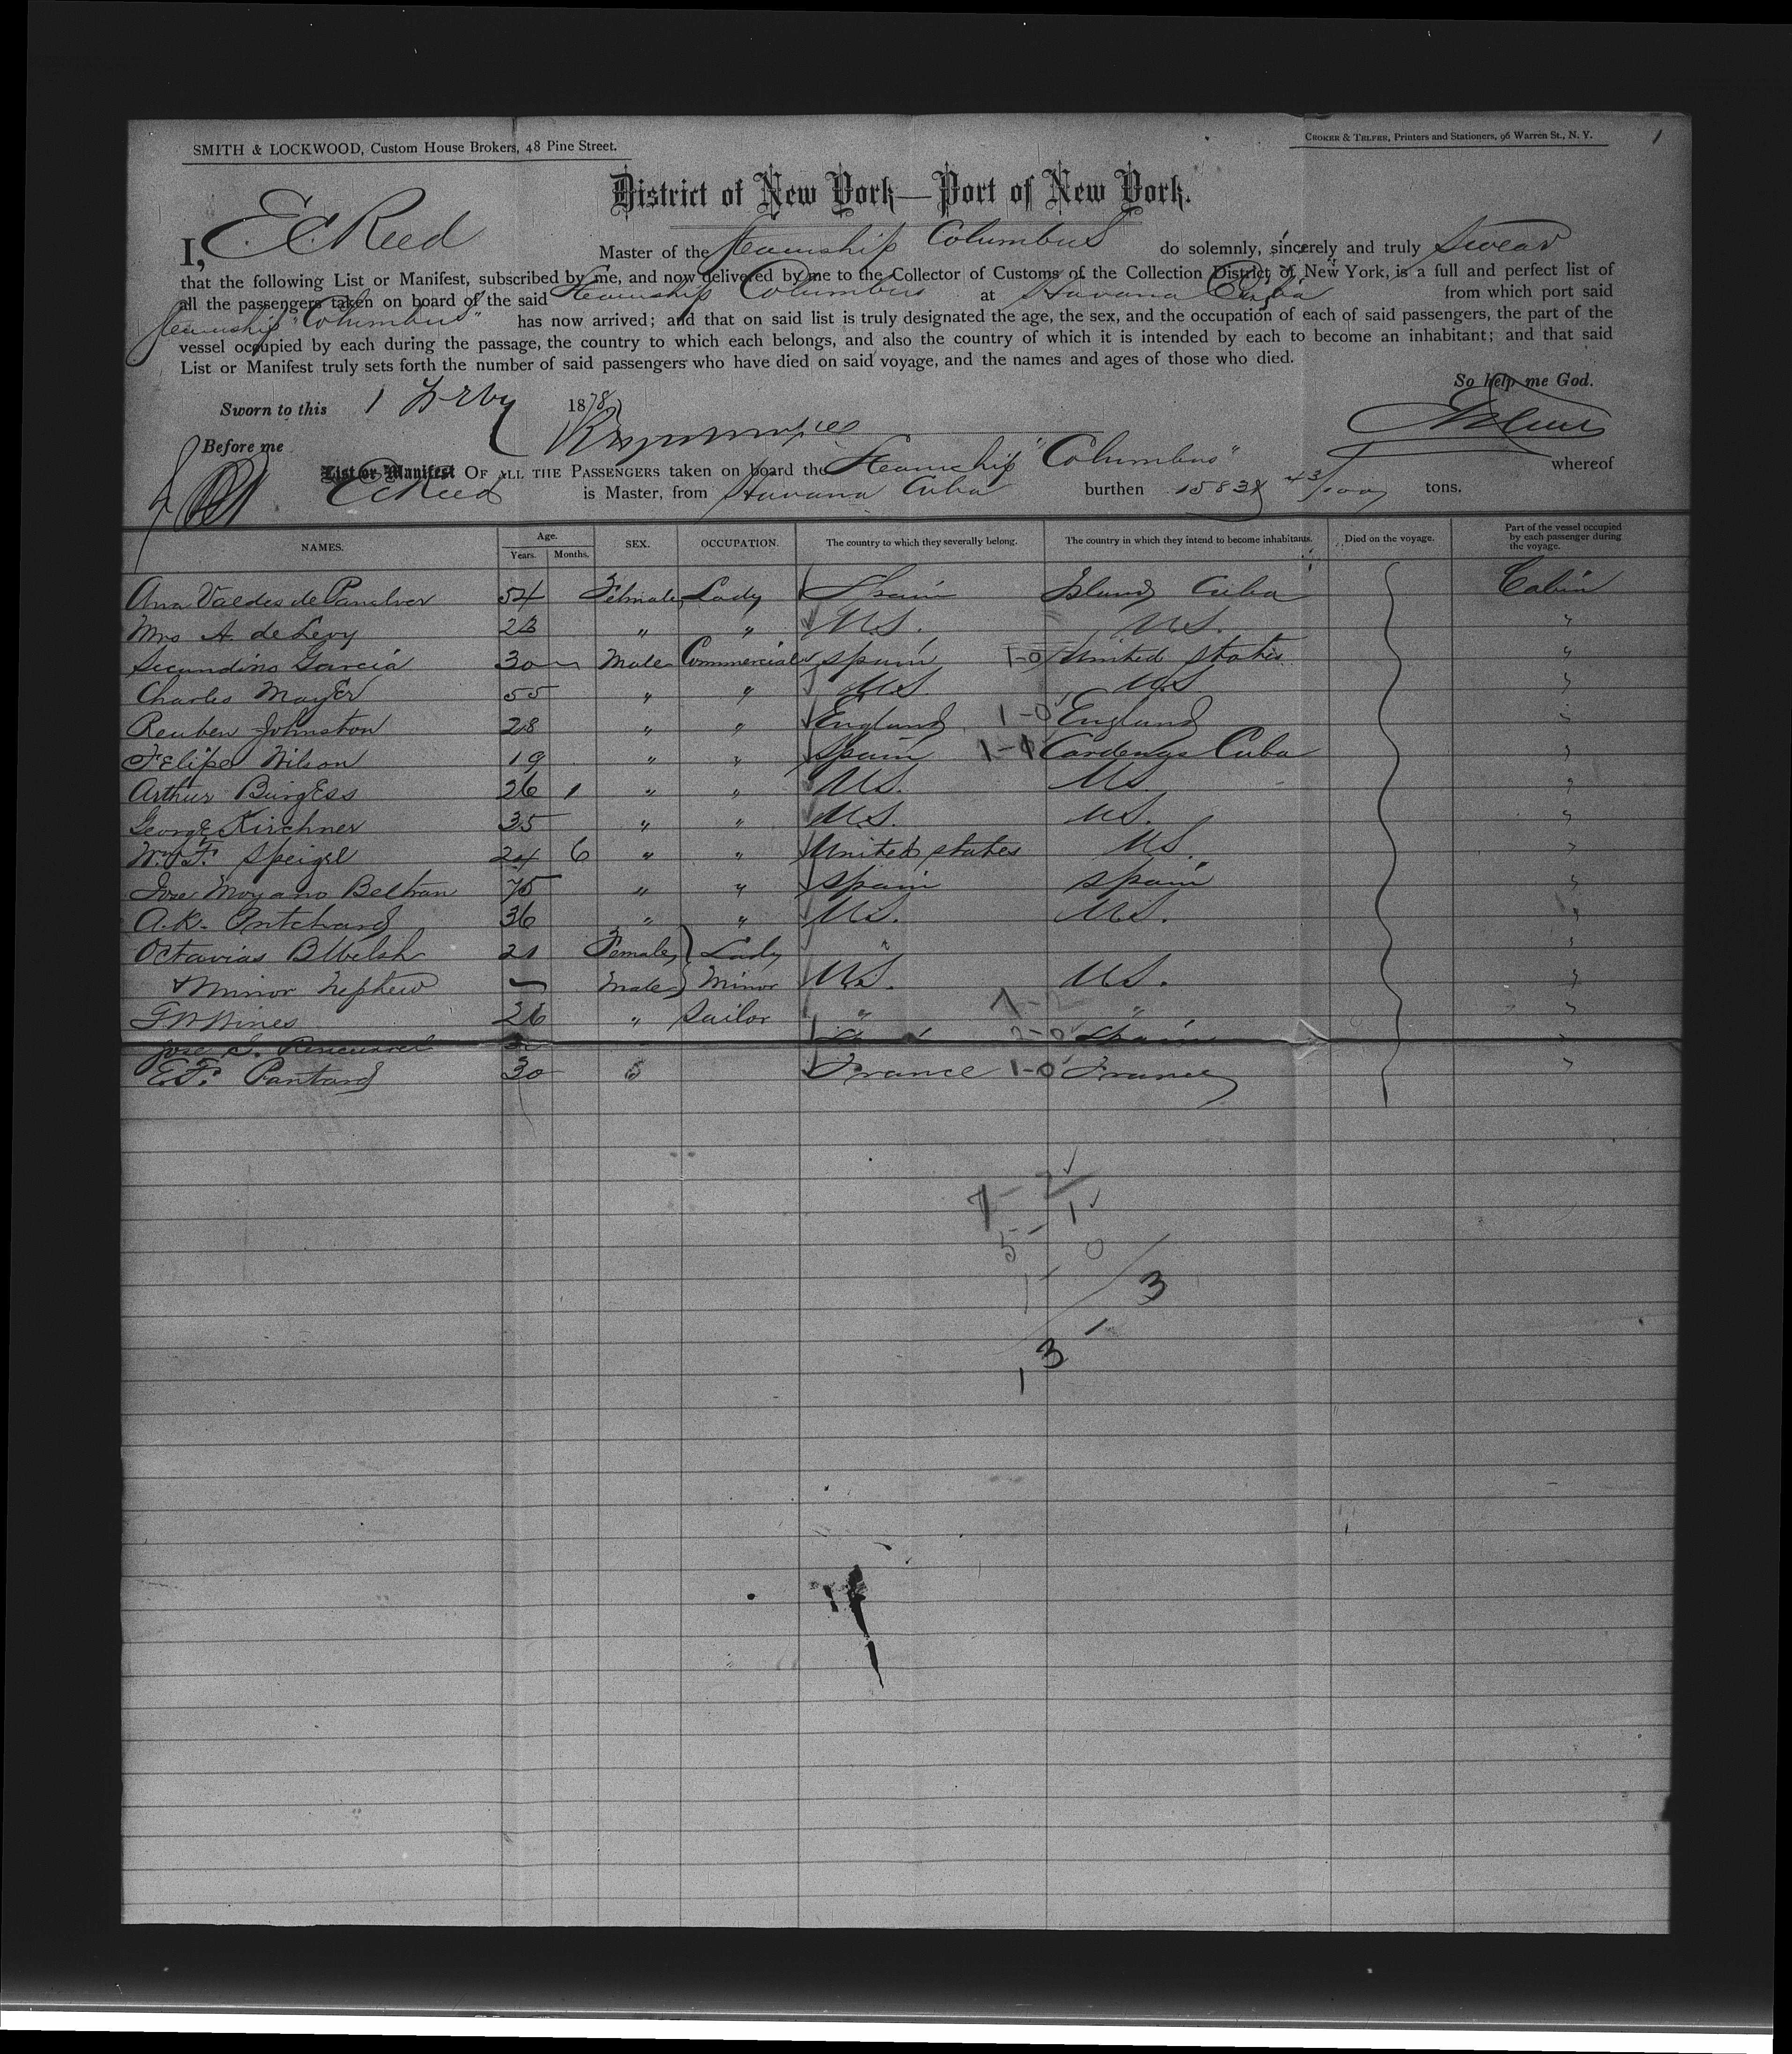 SMITH & LOCKWOOD, Custom House Brokers, 48 Pine Street.
CROKER & TELFER, Printers and Stationers, 96 Warren St., N. Y.
1
District of New York—Port of New York.
I, E C Reed Master of the Steamship Columbus do solemnly, sincerely and truly Swear
that the following List or Manifest, subscribed by me, and now delivered by me to the Collector of Customs of the Collection District of New York, is a full and perfect list of
all the passengers taken on board of the said Steamship Columbus at Havana Cuba from which port said
Steamship "Columbus" has now arrived; and that on said list is truly designated the age, the sex, and the occupation of each of said passengers, the part of the
vessel occupied by each during the passage, the country to which each belongs, and also the country of which it is intended by each to become an inhabitant; and that said
List or Manifest truly sets forth the number of said passengers who have died on said voyage, and the names and ages of those who died.
So help me God.
Sworn to this 1 1878
Before me
List or Manifest OF ALL THE PASSENGERS taken on board the Steamship "Columbus" whereof
E C Reed is Master, from Havana Cuba burthen 1583 43/100 tons.
NAMES. Age. Years. Months. SEX. OCCUPATION. The country to which they severally belong. The country in which they intend to become inhabitants. Died on the voyage. Part of the vessel occupied by each passenger during the voyage.
Ana Valdes de Penalver 54 Female Lady Spain Island Cuba Cabin
Mrs A. de Levy 23 " " U.S. U.S. "
Secundino Garcia 30 Male Commercial Spain 1-0 United States "
Charles Mayer 55 " " U.S U.S "
Reuben Johnston 28 " " England 1-0 England "
Felipe Wilson 19 " " Spain 1- Cardenas Cuba "
Arthur Burgess 26 1 " " U.S. U.S. "
George Kirchner 35 " " U.S. U.S. "
Wm F. Speigel 24 6 " " United States U.S. "
Jose Moyano Beltran 75 " " Spain Spain "
A.K. Pritchard 36 " " U.S. U.S. "
Octavias B Welsh 21 Female Lady " "
& Minor Nephew Male Minor U.S. U.S. "
G W Wines 26 " Sailor " 7-2 " "
Jose 2-0 Spain "
E.F. Pantard 30 " France 1-0 France "
7-2
5-1
1-0
13-3